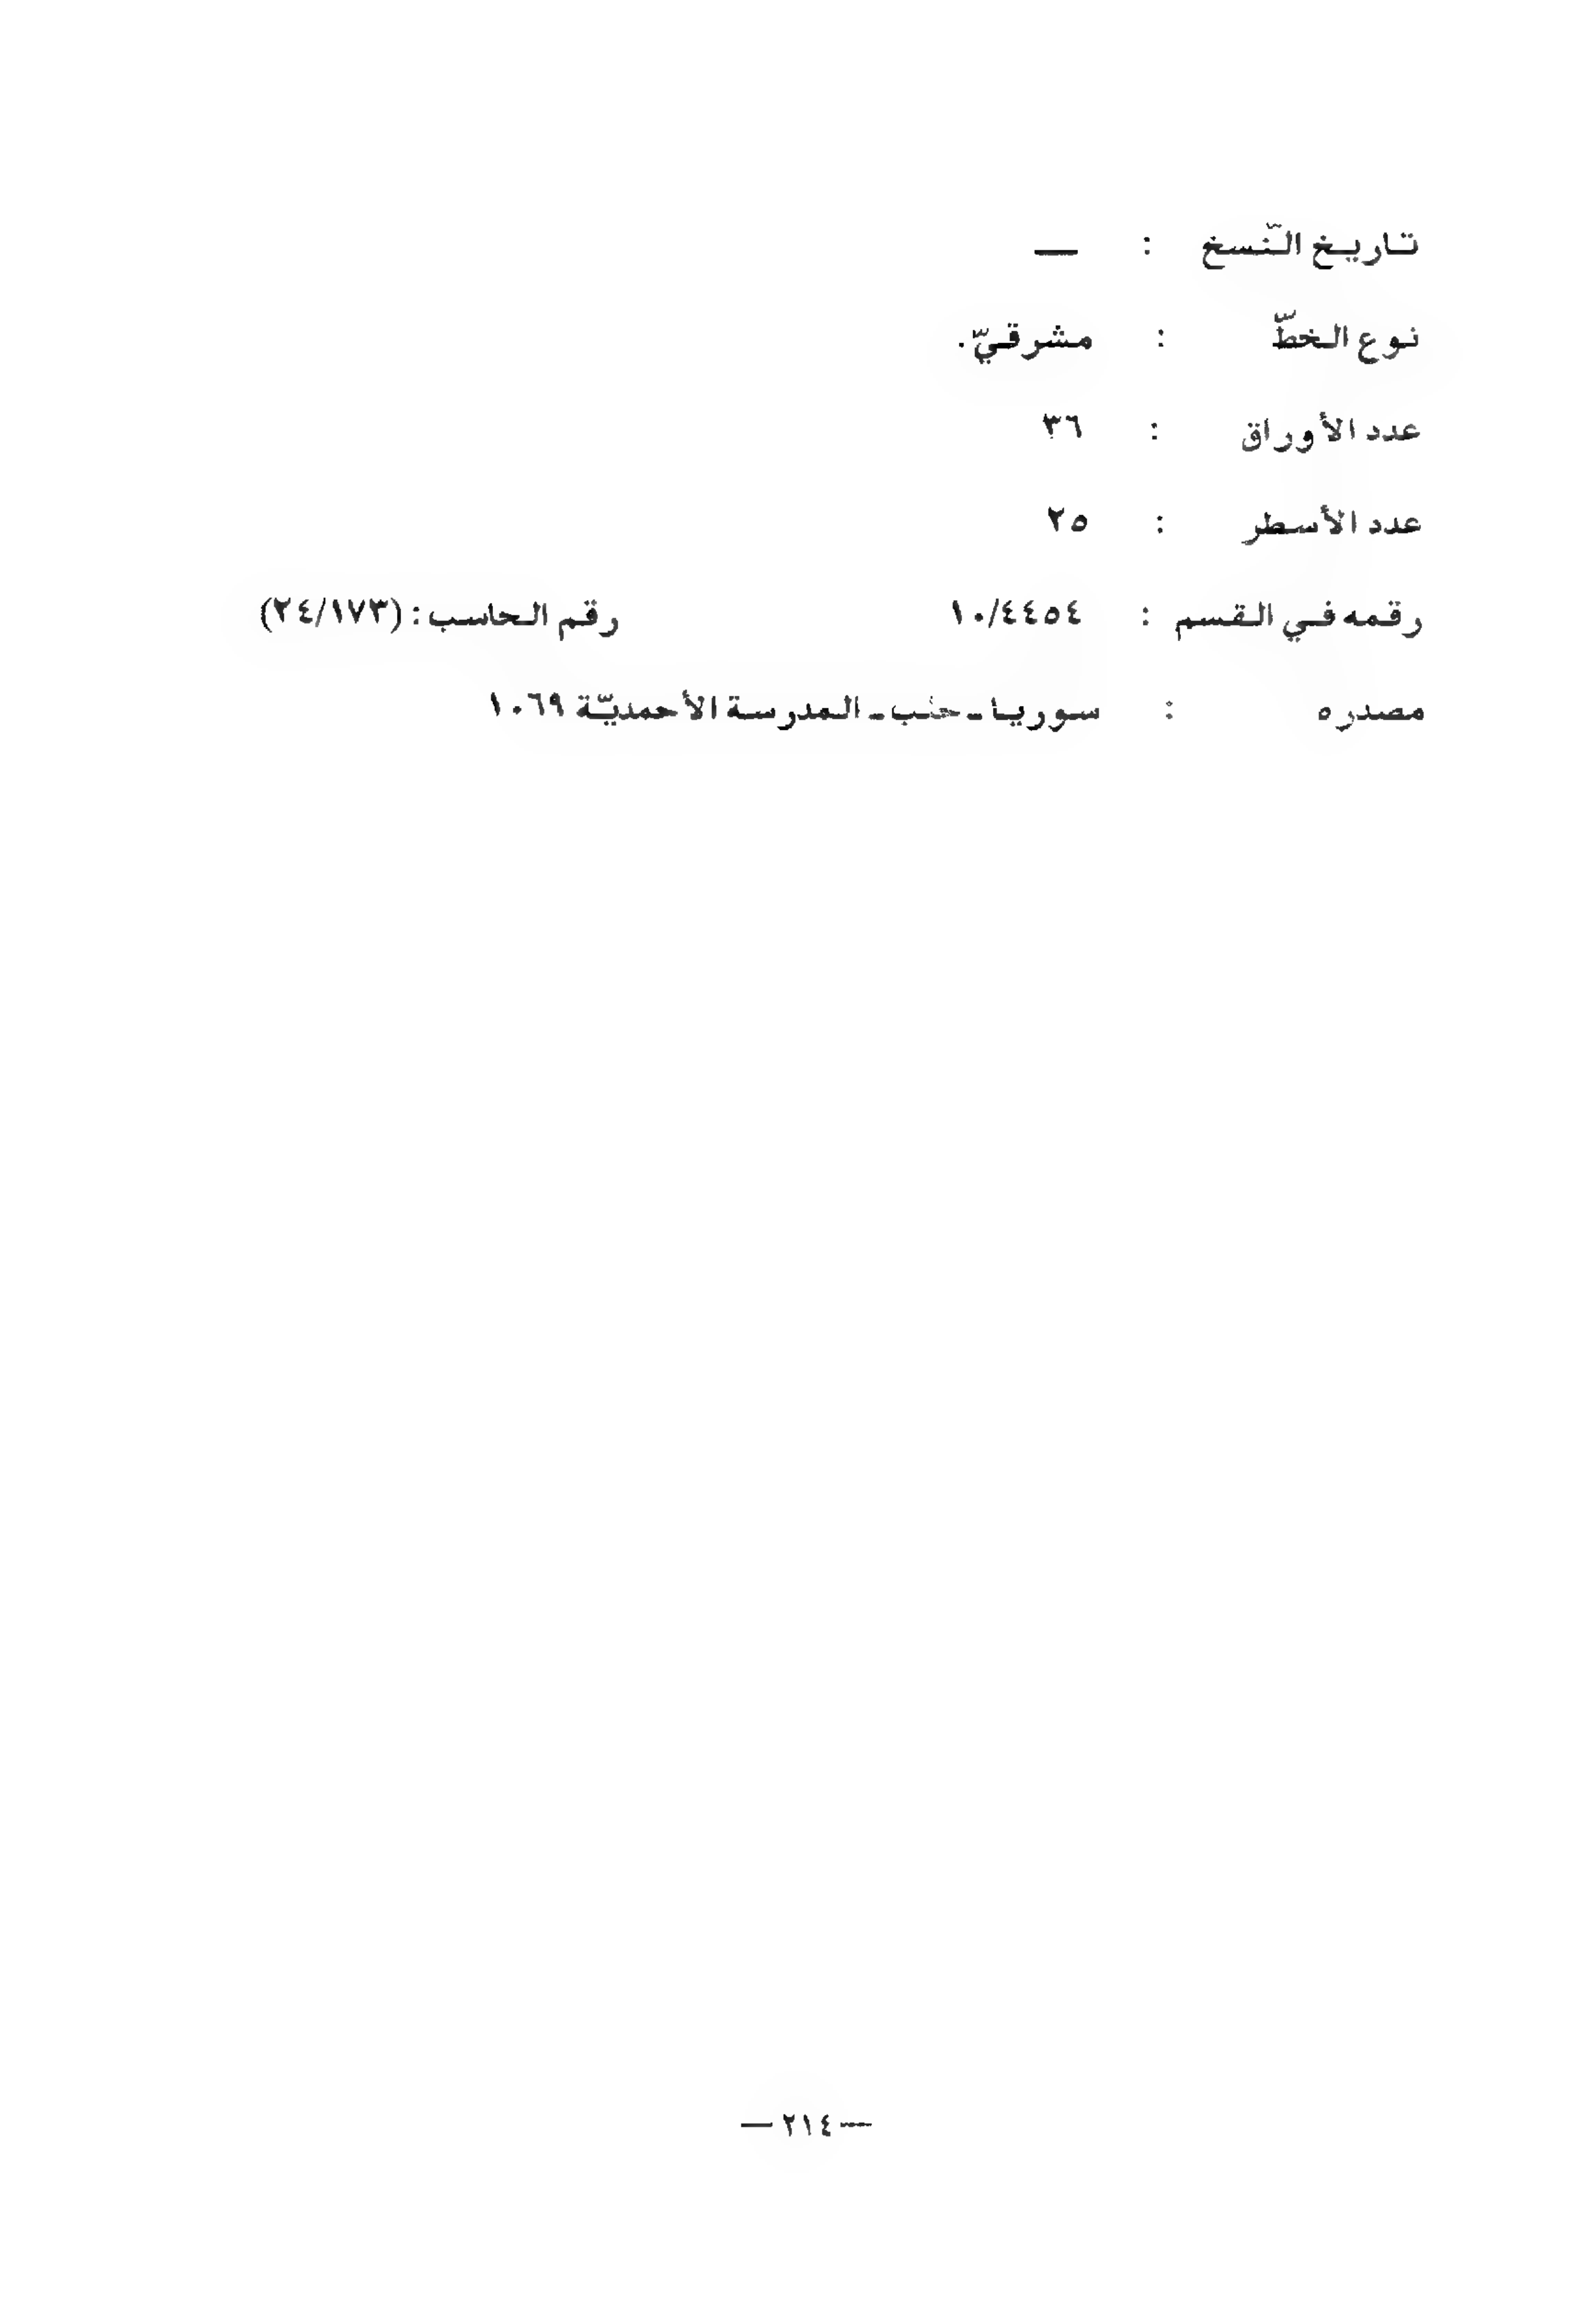 تاريخ النّسخ : —
نوع الخطّ : مشرقيّ.
عدد الأوراق : ٣٦
عدد الأسطر : ٢٥
رقمه في القسم : ١٠/٤٤٥٤ رقم الحاسب : (٢٤/١٧٣)
مصدره : سوريا ـ حلب ـ المدرسة الأحمديّة ١٠٦٩
— ٢١٤ —